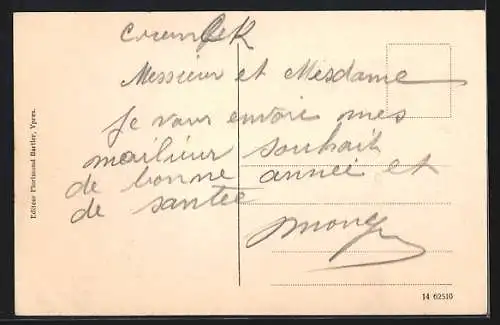 Messieur et Mesdame
Je vous envoie mes
meilieur souhait
de bonne année et
de santée
Editeur Florimond Bartier, Ypres.
14 62510